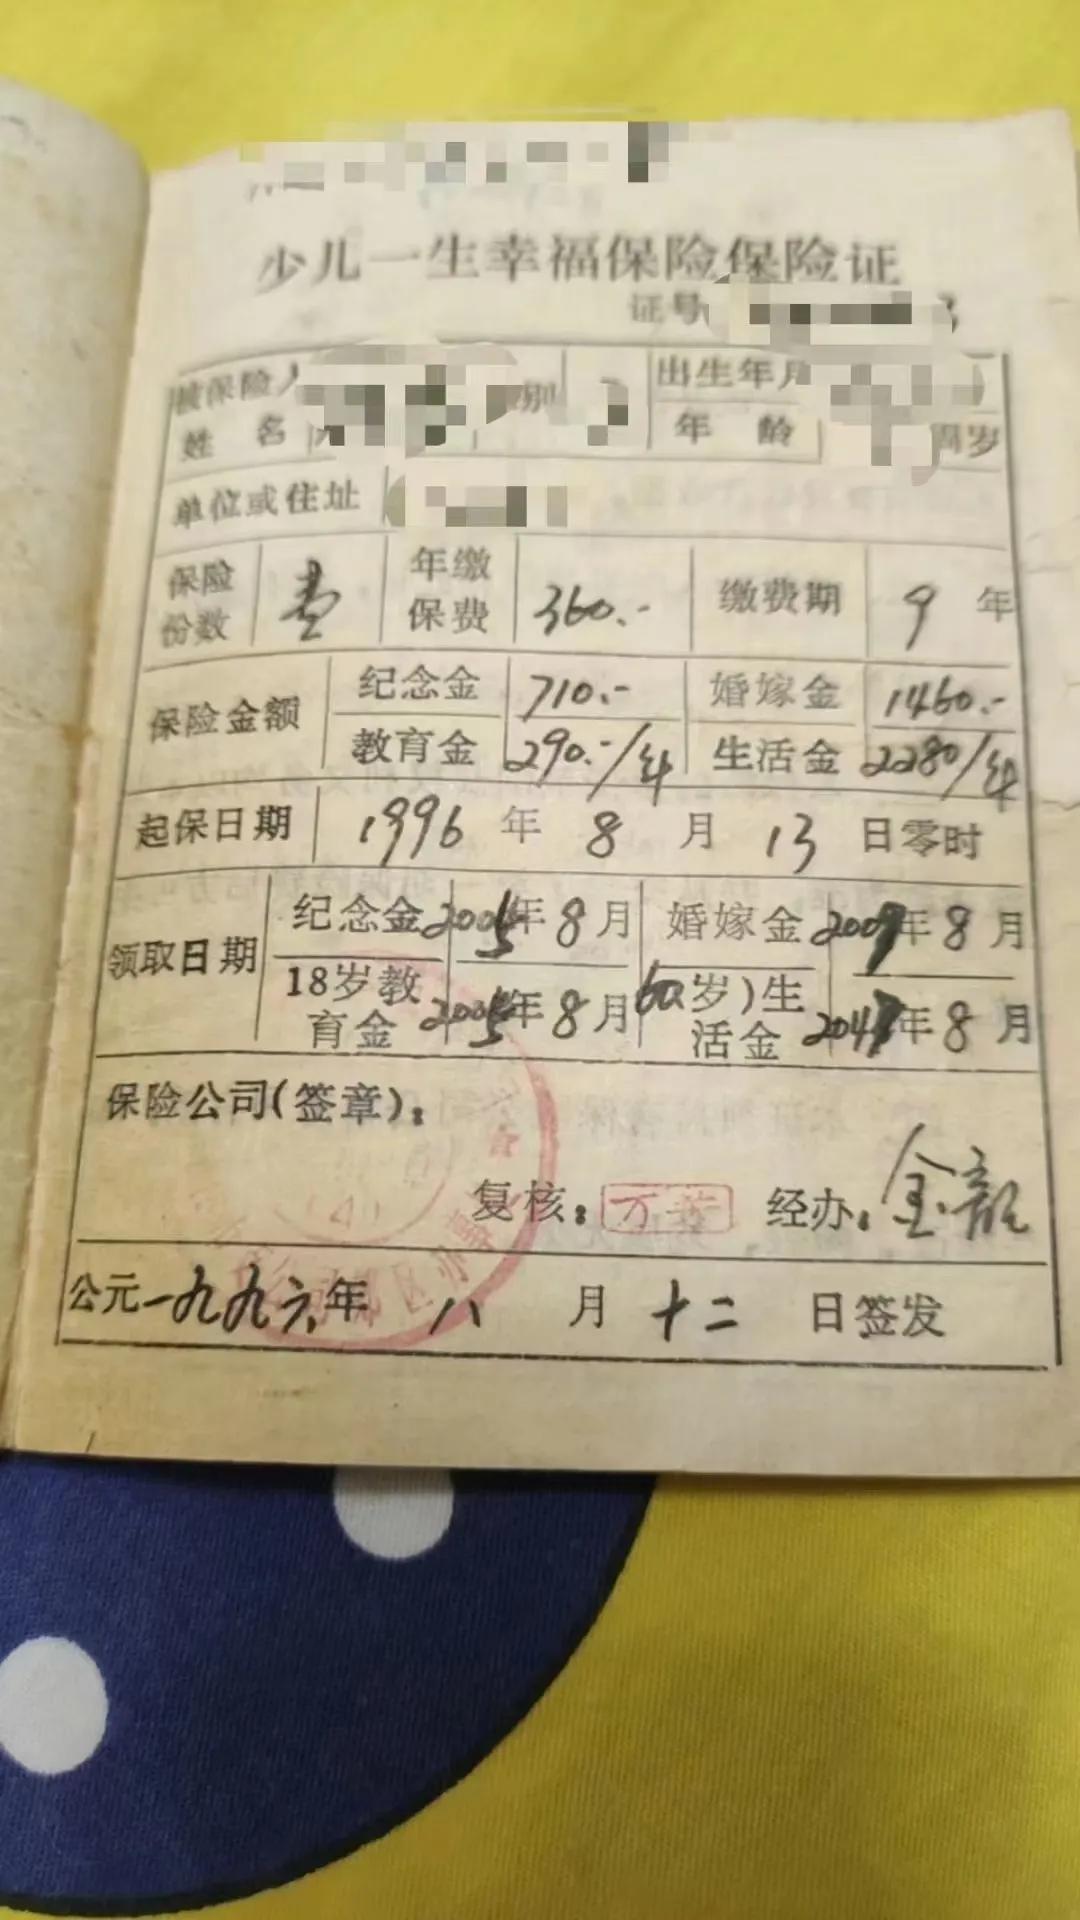 少儿一生幸福保险保险证
证号
被保险人 姓名 别 出生年月 年龄 周岁
单位或住址
保险份数 壹 年缴保费 360.- 缴费期 9 年
保险金额 纪念金 710.- 婚嫁金 1460.-
教育金 290.-/年 生活金 2280/年
起保日期 1996 年 8 月 13 日零时
领取日期 纪念金 2005年8月 婚嫁金 年8月
18岁教育金 2005年8月 60岁)生活金 年8月
保险公司(签章):
复核: 万 经办:金
公元一九九六年 八 月 十二 日签发